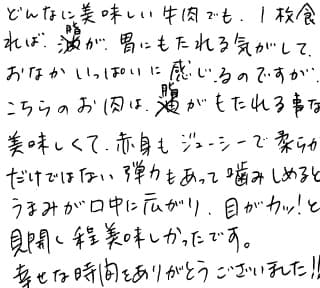 どんなに美味しい牛肉でも、1枚食
れば、脂が、胃にもたれる気がして、
おなかいっぱいに感じるのですが、
こちらのお肉は、脂がもたれる事な
美味しくて、赤身もジューシーで柔らか
だけではない弾力もあって噛みしめると
うまみが口中に広がり、目がカッ!と
見開く程美味しかったです。
幸せな時間をありがとうございました!!